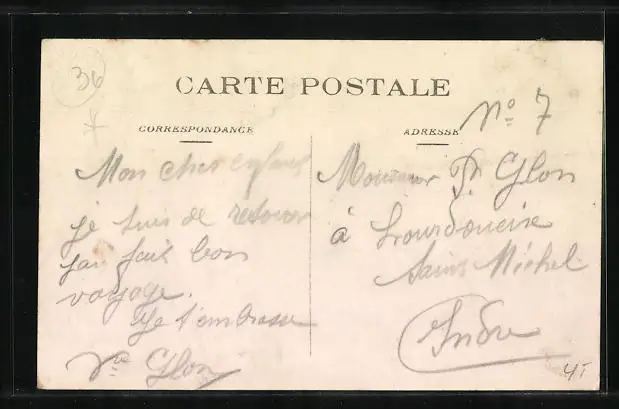 36
CARTE POSTALE
N° 7
CORRESPONDANCE
ADRESSE
Mon cher enfant
je suis de retour
jai fait bon
voyage.
Je t'embrasse
Vve Glon
Monsieur P. Glon
à Lourdoueix
Saint Michel
Indre